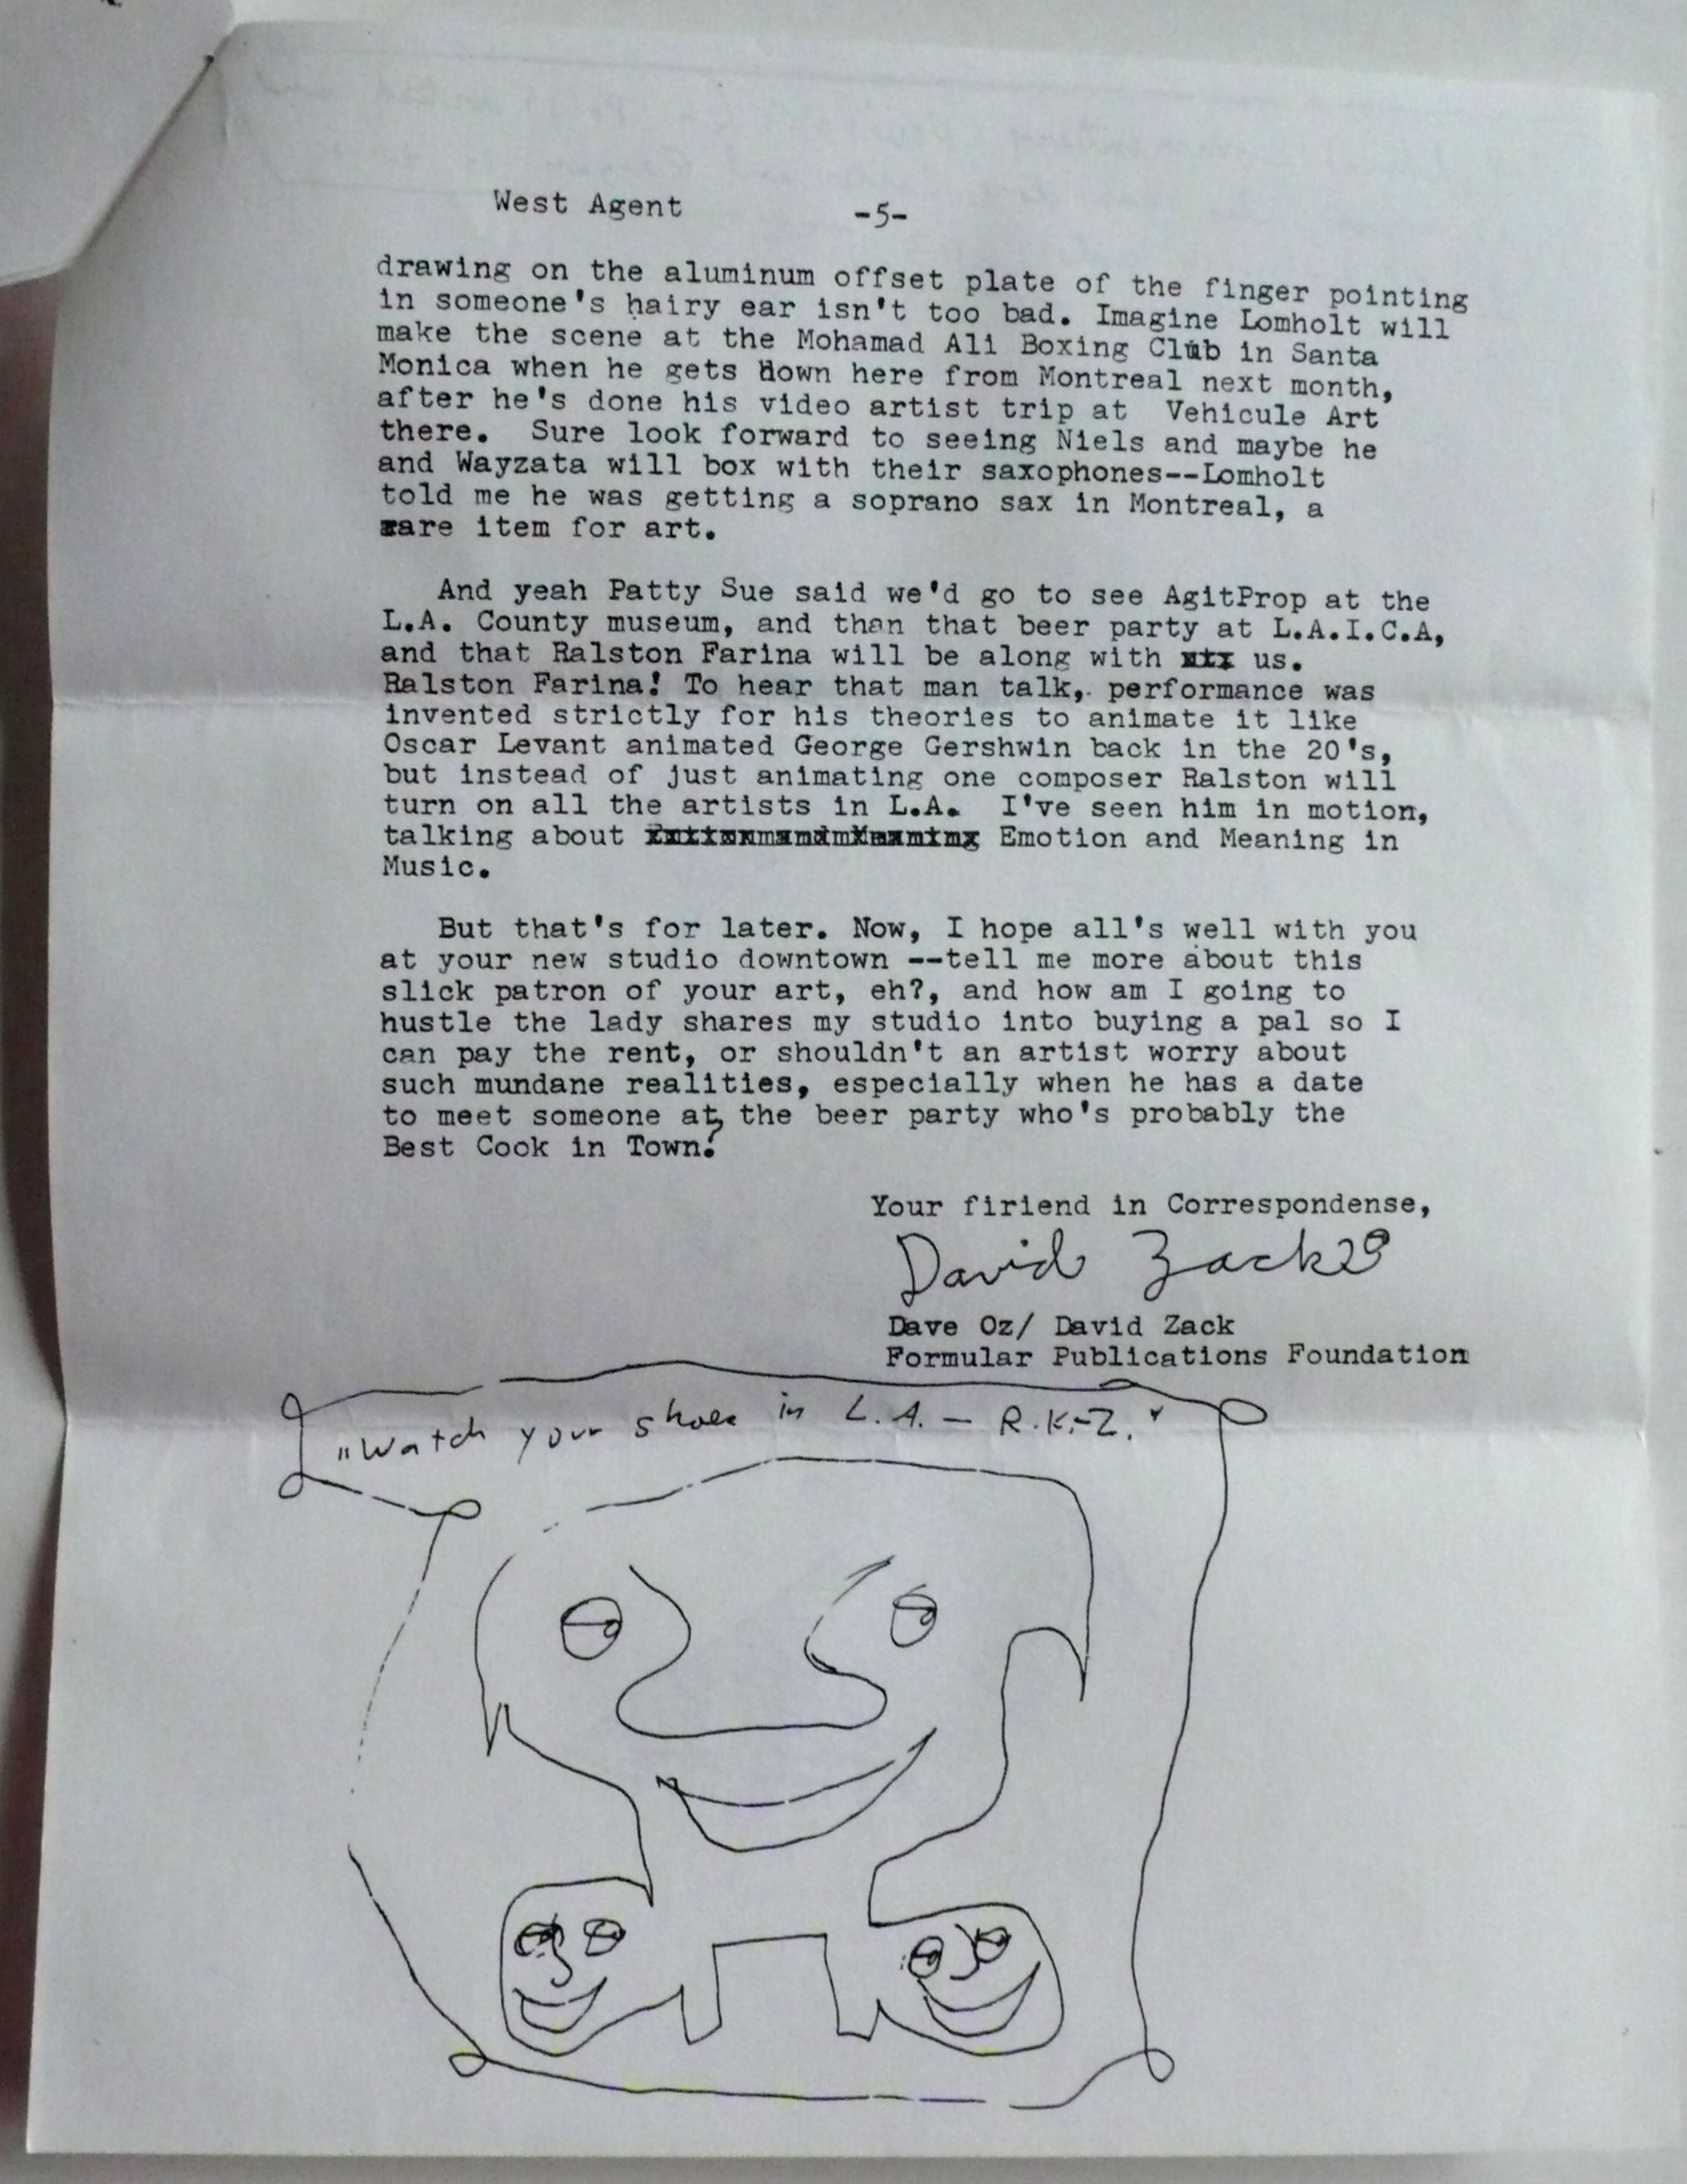 West Agent -5-
drawing on the aluminum offset plate of the finger pointing
in someone's hairy ear isn't too bad. Imagine Lomholt will
make the scene at the Mohamad Ali Boxing Club in Santa
Monica when he gets down here from Montreal next month,
after he's done his video artist trip at Vehicule Art
there. Sure look forward to seeing Niels and maybe he
and Wayzata will box with their saxophones--Lomholt
told me he was getting a soprano sax in Montreal, a
rare item for art.
And yeah Patty Sue said we'd go to see AgitProp at the
L.A. County museum, and than that beer party at L.A.I.C.A,
and that Ralston Farina will be along with us.
Ralston Farina! To hear that man talk, performance was
invented strictly for his theories to animate it like
Oscar Levant animated George Gershwin back in the 20's,
but instead of just animating one composer Ralston will
turn on all the artists in L.A. I've seen him in motion,
talking about Emotion and Meaning in
Music.
But that's for later. Now, I hope all's well with you
at your new studio downtown --tell me more about this
slick patron of your art, eh?, and how am I going to
hustle the lady shares my studio into buying a pal so I
can pay the rent, or shouldn't an artist worry about
such mundane realities, especially when he has a date
to meet someone at the beer party who's probably the
Best Cook in Town?
Your firiend in Correspondense,
David Zack
Dave Oz/ David Zack
Formular Publications Foundation
"Watch your shoes in L.A. — R.K.-Z."